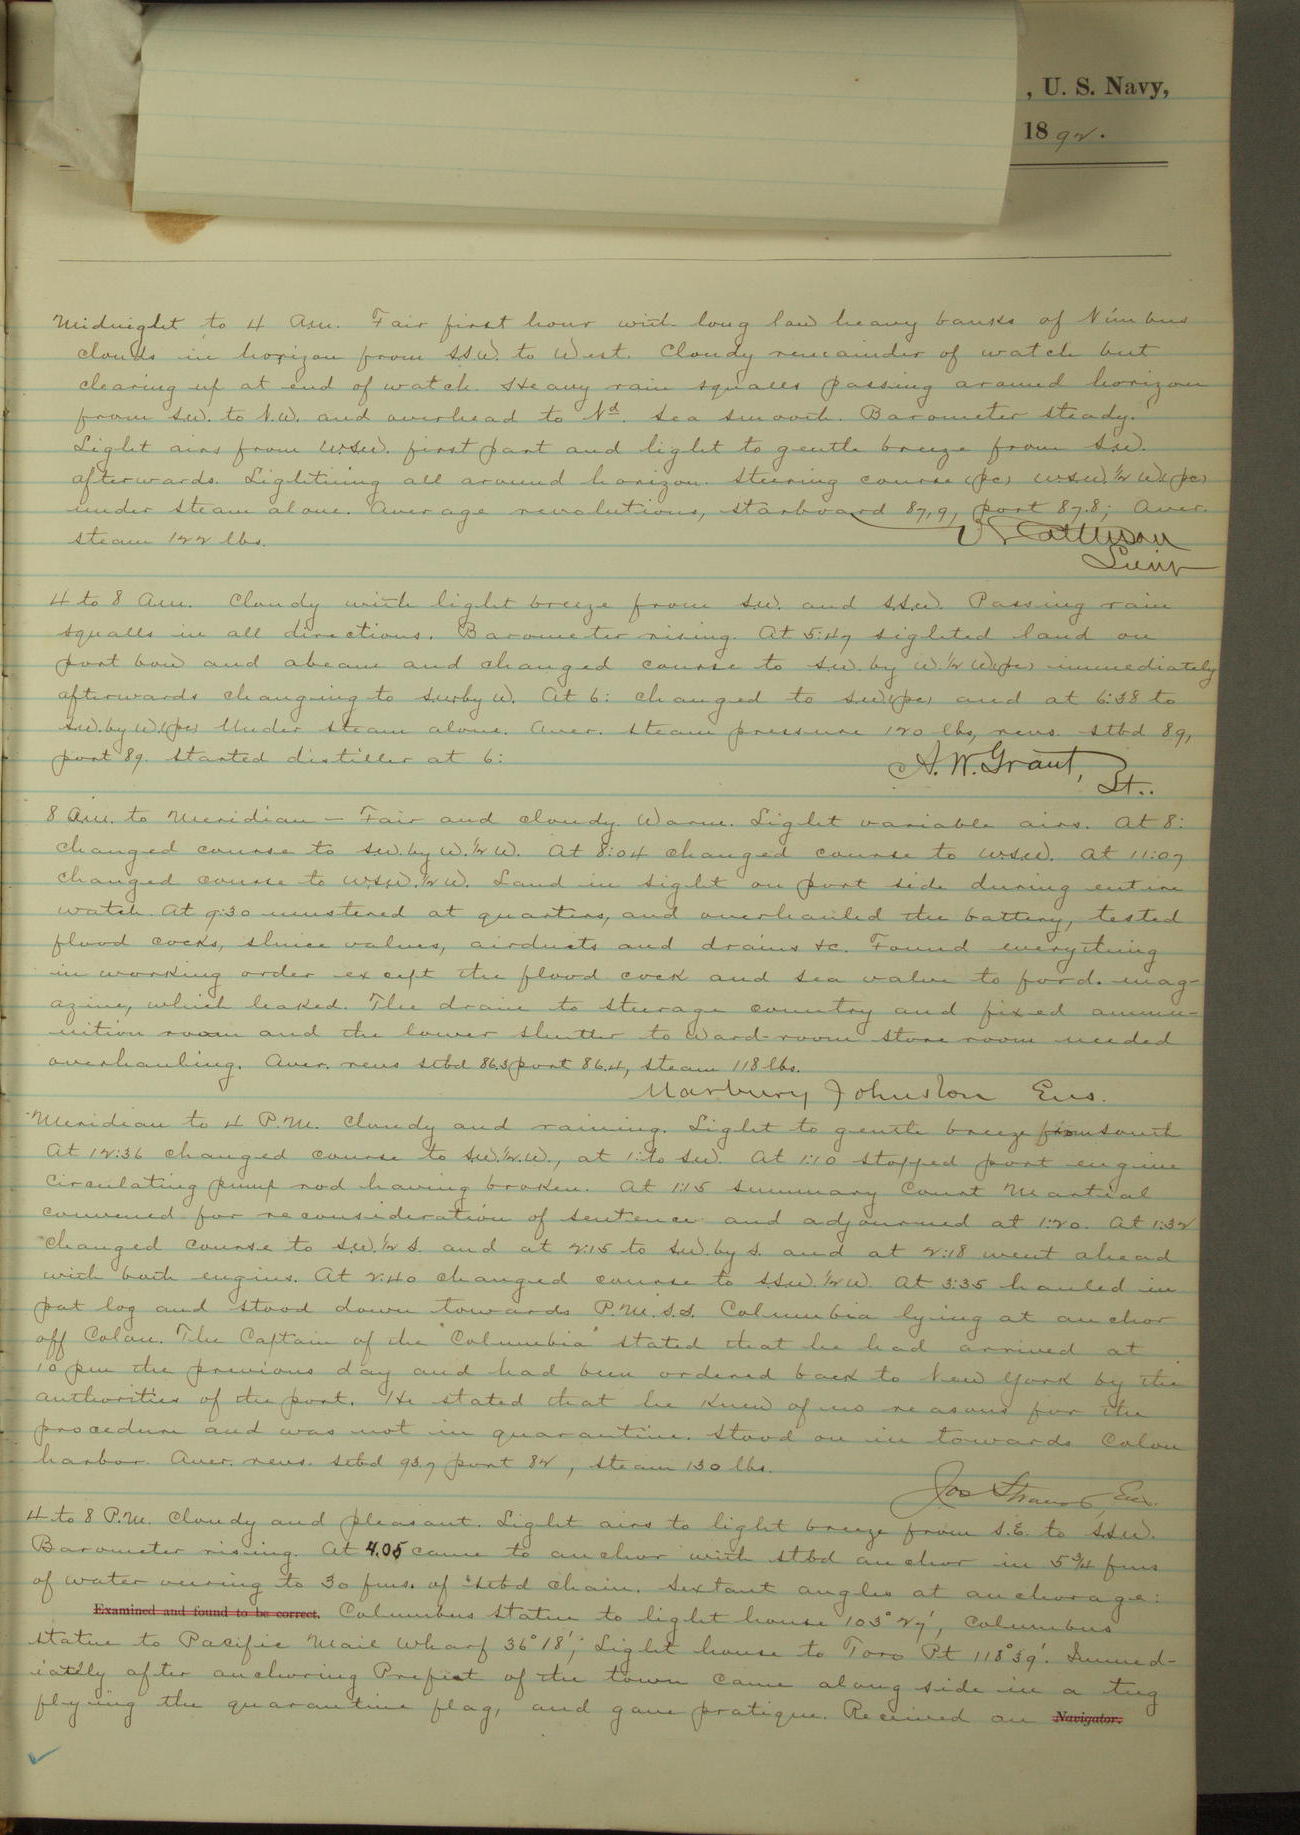 , U. S. Navy,
1892.
Midnight to 4 A.M. Fair first hour with long low heavy banks of Nimbus
clouds in horizon from S.S.W. to West. Cloudy remainder of watch but
clearing up at end of watch. Heavy rain squalls passing around horizon
from S.W. to N.W. and overhead to Nd. Sea smooth. Barometer steady.
Light airs from W.S.W. first part and light to gentle breeze from S.W.
afterwards. Lightning all around horizon. Steering course (pc) W.S.W.½W.(pc)
under steam alone. Average revolutions, starboard 87.9, port 87.8; Aver.
steam 122 lbs.
Lieut
4 to 8 A.M. Cloudy with light breeze from S.W. and S.S.W. Passing rain
squalls in all directions. Barometer rising. At 5:47 sighted land on
port bow and abeam and changed course to S.W. by W.½W.(pc) immediately
afterwards changing to S.W. by W. At 6: changed to S.W.(pc) and at 6:38 to
S.W. by W.(pc) Under steam alone. Aver. steam pressure 120 lbs, revs. stbd 89,
port 89. Started distiller at 6:
A. W. Grant, Lt..
8 A.M. to Meridian – Fair and cloudy. Warm. Light variable airs. At 8:
changed course to S.W. by W.½W. At 8:04 changed course to W.S.W. At 11:07
changed course to W.S.W.½W. Land in sight on port side during entire
watch. At 9:30 mustered at quarters, and overhauled the battery, tested
flood cocks, sluice valves, airducts and drains &c. Found everything
in working order except the flood cock and sea valve to ford. mag-
azine, which leaked. The drain to steerage country and fixed ammu-
nition room and the lower shutter to Ward-room store room needed
overhauling. Aver. revs stbd 86.3 port 86.4, steam 118 lbs.
Marbury Johnston Ens.
Meridian to 4 P.M. Cloudy and raining. Light to gentle breeze from south
At 12:36 changed course to S.W.½W., at 1: to SW. At 1:10 stopped port engine
circulating pump rod having broken. At 1:15 Summary Court Martial
convened for reconsideration of sentence and adjourned at 1:20. At 1:32
changed course to S.W.½S. and at 2:15 to S.W. by S. and at 2:18 went ahead
with both engines. At 2:40 changed course to S.S.W.½W. At 3:35 hauled in
pat log and stood down towards P.M.S.S. Columbia lying at anchor
off Colon. The Captain of the "Columbia" stated that he had arrived at
10 pm the previous day and had been ordered back to New York by the
authorities of the port. He stated that he knew of no reasons for the
procedure and was not in quarantine. Stood on in towards Colon
harbor. Aver. revs. stbd 93.7 port 82, steam 130 lbs.
Jos Strauss, Ens.
4 to 8 P.M. Cloudy and pleasant. Light airs to light breeze from S.E. to S.S.W.
Barometer rising. At 4.05 came to anchor with stbd anchor in 5¾ fms
of water veering to 30 fms. of stbd chain. Sextant angles at anchorage:
Examined and found to be correct. Columbus statue to light house 103°27', Columbus
statue to Pacific Mail Wharf 36°18'; Light house to Toro Pt 118°39'. Immed-
iatlly after anchoring Prefect of the town came along side in a tug
flying the quarantine flag, and gave pratique. Received an Navigator.